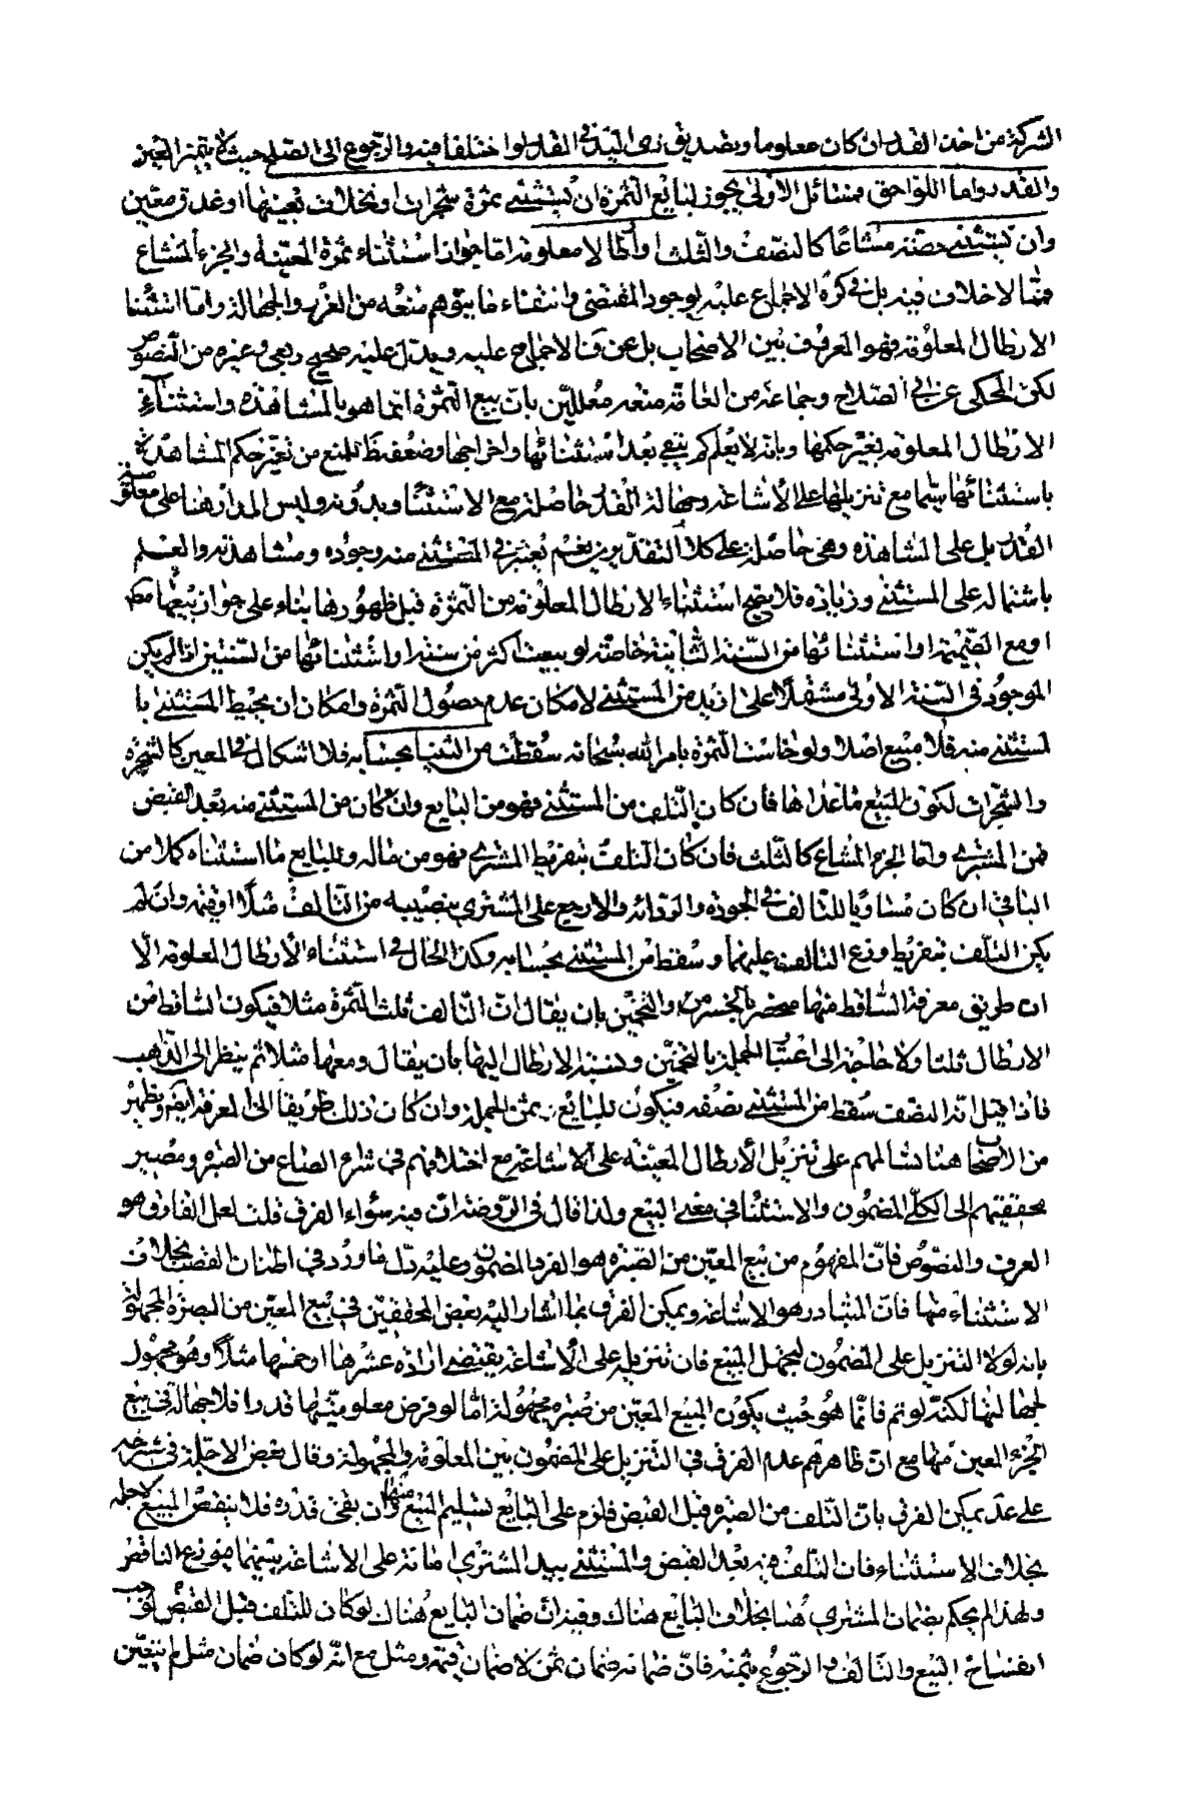 الشركة من اخذ القدر ان كان معلوما وتصديق ذى اليد فى المقدار لو اختلفا فيه والرجوع الى الصلح حيث لا يتميز العين
والقدر واما اللواحق فمسائل الاولى يجوز لبايع الثمرة ان يستثنى ثمرة شجرات او نخلات بعينها او عذق معين
وان يستثنى حصة مشاعا كالنصف والثلث او ارطالا معلومة اما جواز استثناء ثمرة المعينة والجزء المشاع
فمما لا خلاف فيه بل فى كرة الاجماع عليه لوجود المقتضى وانتفاء ما يتوهم منعه من الغرر والجهالة واما استثناء
الارطال المعلومة فهو المعروف بين الاصحاب بل عن ف الاجماع عليه ويدل عليه صحيح ربعى وغيره من النصوص
لكن المحكى عن ابى الصلاح وجماعة من العامة منعه معللين بان بيع الثمرة انما هو بالمشاهدة واستثناء
الارطال المعلومة يغير حكمها وبانه لا يعلم كم يبقى بعد استثنائها واخراجها وضعفه ظ للمنع من تغير حكم المشاهدة
باستثنائها سيما مع تنزيلها على الاشاعة وجهالة القدر حاصلة مع الاستثناء وبدونه وليس المدار هنا على معلومية
القدر بل على المشاهدة وهى حاصلة على كلا التقديرين نعم يعتبر فى المستثنى منه وجوده ومشاهدته والعلم
باشتماله على المستثنى وزيادة فلا يصح استثناء الارطال المعلومة من الثمرة قبل ظهورها بناء على جواز بيعها مط
او مع الضميمة او استثنائها من السنة الثانية خاصة لو بيعت اكثر من سنة او استثنائها من السنتين اذا لم يكن
الموجود فى السنة الاولى مشتملا على ازيد من المستثنى لامكان عدم حصول الثمرة وامكان ان يحيط المستثنى با
لمستثنى منه فلا مبيع اصلا ولو خاست الثمرة بامر الله سبحانه سقطت من الثنيا بحسابه فلا اشكال فى المعين كالشجرة
والشجرات لكون المبيع ما عداها فان كان التلف من المستثنى فهو من البايع وان كان من المستثنى منه بعد القبض
فمن المشترى واما الجزء المشاع كالثلث فان كان التلف بتفريط المشترى فهو من ماله وللبايع ما استثناه كملا من
الباقى ان كان مساويا للتالف فى الجودة والرداءة والا رجع على المشترى بنصيبه من التالف مثلا او قيمة وان لم
يكن التلف بتفريط وزع التالف عليهما وسقط من المستثنى بحسابه وكذا الحال فى استثناء الارطال المعلومة الا
ان طريق معرفة الساقط منها منحصر بالخرص والتخمين بان يقال ان التالف ثلث الثمرة مثلا فيكون الساقط من
الارطال ثلثا ولا حاجة الى اعتبار الجملة بالتخمين ونسبة الارطال اليها بان يقال ومعها مثلا ثم ينظر الى الذاهب
فاذا قيل انه النصف سقط من المستثنى نصفه فيكون للبايع ثمن الجملة وان كان ذلك طريقا الى المعرفة ايضا ويظهر
من الاصحاب هنا تسالمهم على تنزيل الارطال المعينة على الاشاعة مع اختلافهم فى شراء الصاع من الصبرة ومصير
محققيهم الى الكلى المضمون والاستثناء فى معنى البيع ولذا قال فى الروضة ان فيه سؤال الفرق قلت لعل الفارق هو
العرف والنصوص فان المفهوم من بيع المعين من الصبرة هو الفرد المضمون وعليه دل ما ورد فى اطنان القصب بخلاف
الاستثناء منها فان المتبادر هو الاشاعة ويمكن الفرق بما اشار اليه بعض المحققين فى بيع المعين من الصبرة المجهولة
بانه لولا التنزيل على المضمون لجهل المبيع فان تنزيله على الاشاعة يقتضى ارادة عشرها او خمسها مثلا وهو مجهول
لجهالتها لكنه لو تم فانما هو حيث يكون المبيع المعين من صبرة مجهولة اما لو فرض معلوميتها قدرا فلا جهالة فى بيع
الجزء المعين منها مع ان ظاهرهم عدم الفرق فى التنزيل على المضمون بين المعلومة والمجهولة وقال بعض الاجلة فى شرحه
على عد يمكن الفرق بان التلف من الصبرة قبل القبض فلزم على البايع تسليم المبيع منها وان بقى قدره فلا ينقص المبيع لاجله
بخلاف الاستثناء فان التلف فيه بعد القبض والمستثنى بيد المشترى امانة على الاشاعة بينهما فيوزع الناقص
ولهذا لم يحكم بضمان المشترى هنا بخلاف البايع هناك وفيه ان ضمان البايع هناك لو كان للتلف قبل القبض لوجب
انفساخ البيع والتالف والرجوع بثمنه فان ضمانه ضمان ثمن لا ضمان قيمة ومثل مع انه لو كان ضمان مثل لم يتعين